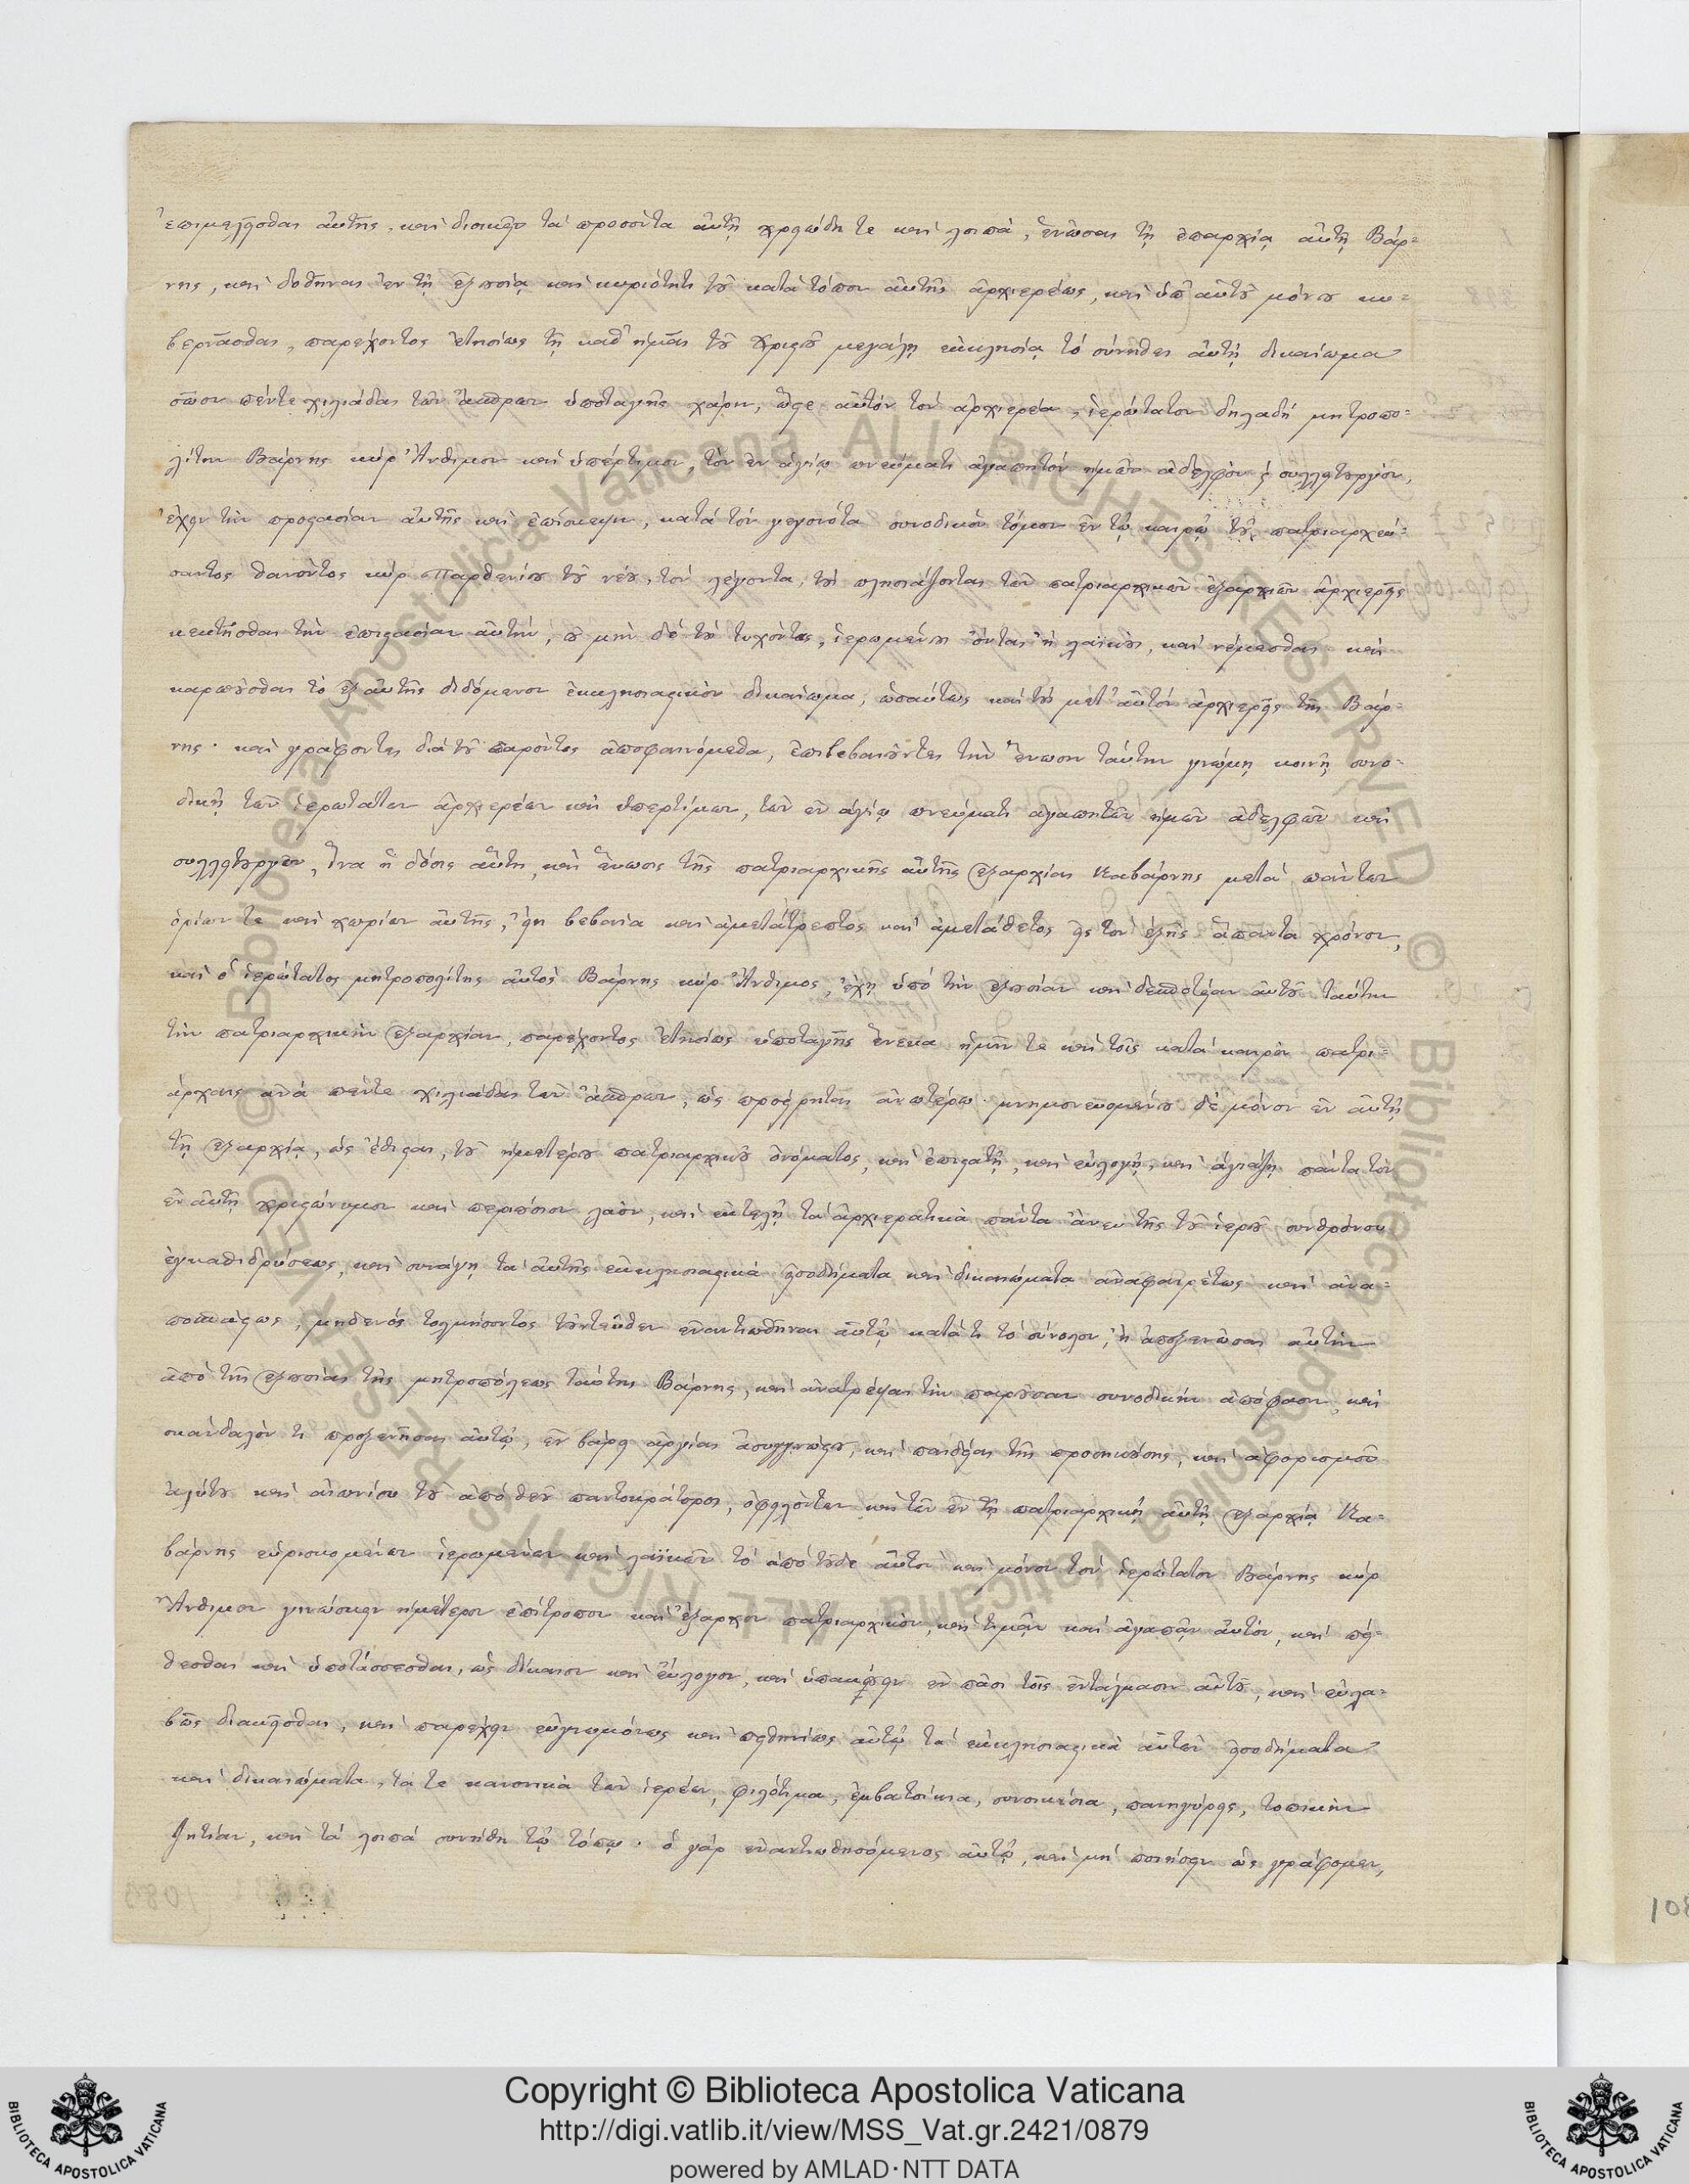 ἐπιμελεῖσθαι αὐτῆς, καὶ διοικεῖν τὰ προσόντα αὐτῇ χρειώδη τε καὶ λοιπὰ, ἑνῶσαι τῇ ἐπαρχίᾳ αὐτῇ Βάρ-
νης, καὶ δοθῆναι ἐν τῇ ἐξουσίᾳ καὶ κυριότητι τοῦ κατὰ τόπον αὐτῆς ἀρχιερέως, καὶ ὑπ' αὐτοῦ μόνου κυ-
βερνᾶσθαι, παρέχοντος ἐτησίως τῇ καθ' ἡμᾶς τοῦ Χριστοῦ μεγάλῃ ἐκκλησίᾳ τὸ σύνηθες αὐτῇ δικαίωμα
σῶον πέντε χιλιάδας τῶν ἄσπρων ὑποταγῆς χάριν, ὥστε αὐτὸν τὸν ἀρχιερέα, ἱερώτατον δηλαδὴ μητροπο-
λίτην Βάρνης κὺρ Ἄνθιμον καὶ ὑπέρτιμον, τὸν ἐν ἁγίῳ πνεύματι ἀγαπητὸν ἡμῶν ἀδελφὸν ϗ συλλειτουργὸν,
ἔχειν τὴν προστασίαν αὐτῆς καὶ ἐπίσκεψιν, κατὰ τὸν γεγονότα συνοδικὸν τόμον ἐν τῷ καιρῷ τοῦ πατριαρχεύ-
σαντος θανόντος κὺρ Παρθενίου τοῦ νέου, τὸν λέγοντα, τοὺς πλησιάζοντας τῶν πατριαρχικῶν ἐξαρχιῶν ἀρχιερεῖς
κεκτῆσθαι τὴν ἐπιστασίαν αὐτὴν, οὐ μὴν δὲ τοὺς τυχόντας, ἱερωμένους ὄντας ἢ λαϊκοὺς, καὶ νέμεσθαι καὶ
καρποῦσθαι τὸ ἐξ αὐτῆς διδόμενον ἐκκλησιαστικὸν δικαίωμα, ὡσαύτως καὶ τοὺς μετ' αὐτὸν ἀρχιερεῖς τῆς Βάρ-
νης· καὶ γράφοντες διὰ τοῦ παρόντος ἀποφαινόμεθα, ἐπιβεβαιοῦντες τὴν ἕνωσιν ταύτην γνώμῃ κοινῇ συνο-
δικῇ τῶν ἱερωτάτων ἀρχιερέων καὶ ὑπερτίμων, τῶν ἐν ἁγίῳ πνεύματι ἀγαπητῶν ἡμῶν ἀδελφῶν καὶ
συλλειτουργῶν, ἵνα ἡ δόσις αὕτη, καὶ ἕνωσις τῆς πατριαρχικῆς αὐτῆς ἐξαρχίας Καβάρνης μετὰ πάντων
ὁρίων τε καὶ χωρίων αὐτῆς, ᾖ βεβαία καὶ ἀμετάτρεπτος καὶ ἀμετάθετος εἰς τὸν ἑξῆς ἅπαντα χρόνον,
καὶ ὁ ἱερώτατος μητροπολίτης αὐτὸς Βάρνης κὺρ Ἄνθιμος, ἔχῃ ὑπὸ τὴν ἐξουσίαν καὶ δεσποτείαν αὐτοῦ ταύτην
τὴν πατριαρχικὴν ἐξαρχίαν, παρέχοντος ἐτησίως ὑποταγῆς ἕνεκα ἡμῖν τε καὶ τοῖς κατὰ καιρὸν πατρι-
άρχαις ἀνὰ πέντε χιλιάδας τῶν ἄσπρων, ὡς προείρηται ἀνωτέρω· μνημονευομένου δὲ μόνον ἐν αὐτῇ
τῇ ἐξαρχίᾳ, ὡς ἔθισται, τοῦ ἡμετέρου πατριαρχικοῦ ὀνόματος, καὶ ἐπιστατῇ, καὶ εὐλογῇ, καὶ ἁγιάζῃ πάντα τὸν
ἐν αὐτῇ χριστώνυμον καὶ περιούσιον λαὸν, καὶ ἐκτελῇ τὰ ἀρχιερατικὰ πάντα ἄνευ τῆς τοῦ ἱεροῦ συνθρόνου
ἐγκαθιδρύσεως, καὶ συνάγῃ τὰ αὐτῆς ἐκκλησιαστικὰ εἰσοδήματα καὶ δικαιώματα ἀναφαιρέτως καὶ ἀνα-
ποσπάστως, μηδενὸς τολμήσοντος τοὐντεῦθεν ἐναντιωθῆναι αὐτῷ κατά τι τὸ σύνολον, ἢ ἀποξενῶσαι αὐτὴν
ἀπὸ τῆς ἐξουσίας τῆς μητροπόλεως ταύτης Βάρνης, καὶ ἀνατρέψαι τὴν παροῦσαν συνοδικὴν ἀπόφασιν, καὶ
σκάνδαλόν τι προξενῆσαι αὐτῷ, ἐν βάρει ἀργίας ἀσυγγνώστου, καὶ παιδείας τῆς προσηκούσης, καὶ ἀφορισμοῦ
ἀλύτου καὶ αἰωνίου τοῦ ἀπὸ θεοῦ παντοκράτορος, ὀφειλόντων καὶ τῶν ἐν τῇ πατριαρχικῇ αὐτῇ ἐξαρχίᾳ Κα-
βάρνης εὑρισκομένων ἱερωμένων καὶ λαϊκῶν τὸ ἀπὸ τοῦδε αὐτὸν καὶ μόνον τὸν ἱερώτατον Βάρνης κὺρ
Ἄνθιμον γινώσκειν ἡμέτερον ἐπίτροπον καὶ ἔξαρχον πατριαρχικὸν, καὶ τιμᾶν καὶ ἀγαπᾶν αὐτὸν, καὶ πεί-
θεσθαι καὶ ὑποτάσσεσθαι, ὡς δίκαιον καὶ εὔλογον, καὶ ὑπακούειν ἐν πᾶσι τοῖς ἐντάλμασιν αὐτοῦ, καὶ εὐλα-
βῶς διακεῖσθαι, καὶ παρέχειν εὐγνωμόνως καὶ εὐπειθῶς αὐτῷ τὰ ἐκκλησιαστικὰ αὐτῶν εἰσοδήματα
καὶ δικαιώματα, τά τε κανονικὰ τῶν ἱερέων, φιλότιμα, ἐμβατοίκια, συνοικέσια, πανηγύρεις, τοπικὴν
ζητείαν, καὶ τὰ λοιπὰ συνήθη τῷ τόπῳ· ὁ γὰρ ἐναντιωθησόμενος αὐτῷ, καὶ μὴ ποιήσειν ὡς γράφομεν,
Copyright © Biblioteca Apostolica Vaticana
http://digi.vatlib.it/view/MSS_Vat.gr.2421/0879
powered by AMLAD·NTT DATA